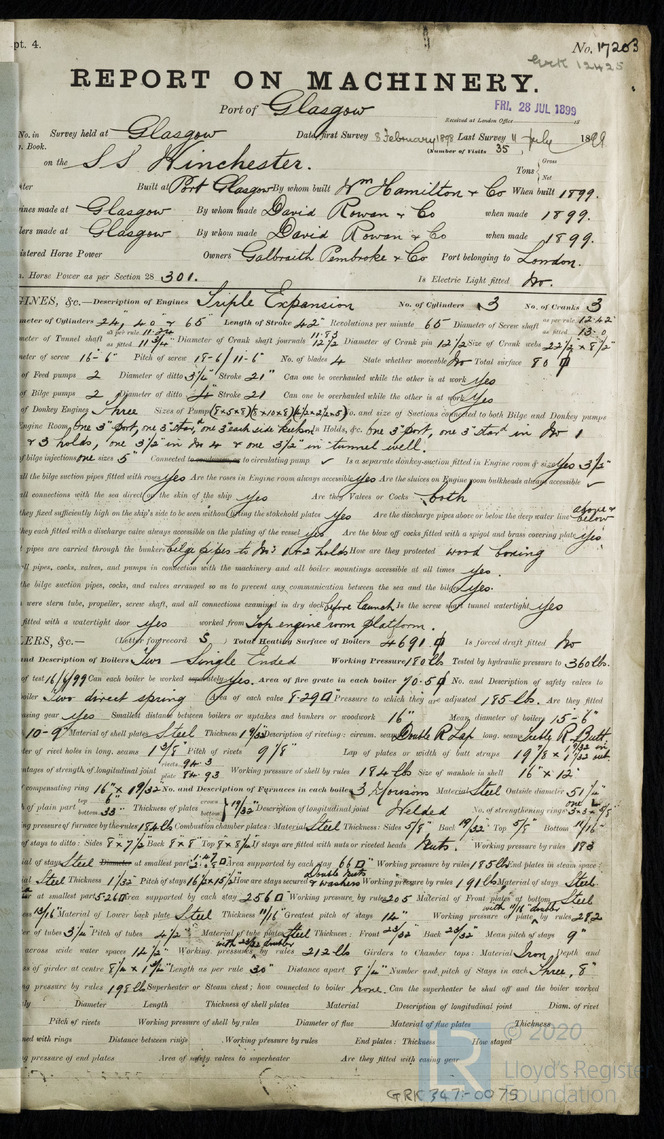 pt. 4.
No. 17203
GRK 12425
REPORT ON MACHINERY.
Port of Glasgow
FRI. 28 JUL 1899
Received at London Office 18
No. in Survey held at Glasgow Date, first Survey 8 February 1898 Last Survey 11 July 1899
Book. (Number of Visits 35)
on the SS Winchester. Tons Gross Net
Built at Port Glasgow By whom built Wm Hamilton & Co When built 1899.
ines made at Glasgow By whom made David Rowan & Co when made 1899.
lers made at Glasgow By whom made David Rowan & Co when made 1899.
istered Horse Power Owners Galbraith Pembroke & Co Port belonging to London.
Horse Power as per Section 28 301. Is Electric Light fitted No.
GINES, &c.—Description of Engines Triple Expansion No. of Cylinders 3 No. of Cranks 3
meter of Cylinders 24", 40" & 65" Length of Stroke 42" Revolutions per minute 65 Diameter of Screw shaft as per rule 12.42 as fitted 13.0
meter of Tunnel shaft as per rule as fitted 11 3/4" Diameter of Crank shaft journals 12 1/2 Diameter of Crank pin 12 1/2 Size of Crank webs 22 1/2 x 8 1/2"
meter of screw 16-6" Pitch of screw 18-6/11-6" No. of blades 4 State whether moveable No Total surface 80
of Feed pumps 2 Diameter of ditto 3 1/4" Stroke 21" Can one be overhauled while the other is at work yes
of Bilge pumps 2 Diameter of ditto 4" Stroke 21" Can one be overhauled while the other is at work yes
of Donkey Engines Three Sizes of Pumps No. and size of Suctions connected to both Bilge and Donkey pumps
Engine Room One 3" port, one 3" star'd, one 3" each side In Holds, &c. One 3" port, one 3" star'd in No 1
& 3 holds, one 3 1/2" in No 4 & one 3 1/2" in tunnel well.
of bilge injections one sizes 5" Connected to circulating pump ✓ Is a separate donkey-suction fitted in Engine room & size yes 3 1/2"
all the bilge suction pipes fitted with roses yes Are the roses in Engine room always accessible yes Are the sluices on Engine room bulkheads always accessible ✓
all connections with the sea direct on the skin of the ship yes Are they Valves or Cocks both
they fixed sufficiently high on the ship's side to be seen without lifting the stokehold plates yes Are the discharge pipes above or below the deep water line above & below
they each fitted with a discharge valve always accessible on the plating of the vessel yes Are the blow off cocks fitted with a spigot and brass covering plate yes
pipes are carried through the bunkers bilge pipes to No. 1 & 2 holds How are they protected wood boxing
all pipes, cocks, valves, and pumps in connection with the machinery and all boiler mountings accessible at all times yes.
the bilge suction pipes, cocks, and valves arranged so as to prevent any communication between the sea and the bilges yes.
were stern tube, propeller, screw shaft, and all connections examined in dry dock before launch Is the screw shaft tunnel watertight yes
fitted with a watertight door yes worked from Top engine room platform.
LERS, &c.— (Letter for record S) Total Heating Surface of Boilers 4691 Is forced draft fitted No
and Description of Boilers Two Single Ended Working Pressure 180 lbs Tested by hydraulic pressure to 360 lbs.
of test 16/6/99 Can each boiler be worked separately yes. Area of fire grate in each boiler 70.5 No. and Description of safety valves to
boiler Two direct spring Area of each valve 8.29 Pressure to which they are adjusted 185 lbs. Are they fitted
easing gear yes Smallest distance between boilers or uptakes and bunkers or woodwork 16" Mean diameter of boilers 15-6"
10-9" Material of shell plates Steel Thickness 19/32 Description of riveting: circum. seams Double R Lap long. seams Treble R Butt
ter of rivet holes in long. seams 1 3/8" Pitch of rivets 9 7/8" Lap of plates or width of butt straps 19 7/8
entages of strength of longitudinal joint rivets 94.3 plate 84.93 Working pressure of shell by rules 184 lbs Size of manhole in shell 16" x 12"
compensating ring 16" x 19/32 No. and Description of Furnaces in each boiler 3 Morisons Material Steel Outside diameter 51 1/4"
of plain part top 6" bottom 33" Thickness of plates crown bottom 19/32" Description of longitudinal joint Welded No. of strengthening rings one
ng pressure of furnace by the rules 184 lbs Combustion chamber plates: Material Steel Thickness: Sides 5/8" Back 19/32" Top 5/8" Bottom 11/16"
of stays to ditto: Sides 8 x 7 1/2 Back 8 x 8" Top 8 x 8 1/2 If stays are fitted with nuts or riveted heads Nuts. Working pressure by rules 183
al of stays Steel Diameter at smallest part Area supported by each stay 66 Working pressure by rules 185 lbs End plates in steam space:
ial Steel Thickness 1 1/32" Pitch of stays 16 1/2 x 15 1/2 How are stays secured double nuts & washers Working pressure by rules 191 lbs Material of stays Steel
at smallest part 5.26 Area supported by each stay 256 Working pressure by rules 205 Material of Front plates at bottom Steel
ness 13/16" Material of Lower back plate Steel Thickness 11/16" Greatest pitch of stays 14" Working pressure of plate by rules with 11/16" doubler 282
ter of tubes 3 1/4" Pitch of tubes 4 1/2" Material of tube plates Steel Thickness: Front 23/32" Back 23/32" Mean pitch of stays 9"
across wide water spaces 14 1/2" Working pressures by rules with 23/32 doubler 212 lbs Girders to Chamber tops: Material Iron, Depth and
ss of girder at centre 8 1/4 x 1 3/4" Length as per rule 30" Distance apart 8 1/4" Number and pitch of Stays in each Three, 8"
ng pressure by rules 198 lbs Superheater or Steam chest; how connected to boiler None. Can the superheater be shut off and the boiler worked
ly Diameter Length Thickness of shell plates Material Description of longitudinal joint Diam. of rivet
Pitch of rivets Working pressure of shell by rules Diameter of flue Material of flue plates Thickness
ned with rings Distance between rings Working pressure by rules End plates: Thickness How stayed
ng pressure of end plates Area of safety valves to superheater Are they fitted with easing gear
© 2020
Lloyd's Register
Foundation
GRK 347-0075